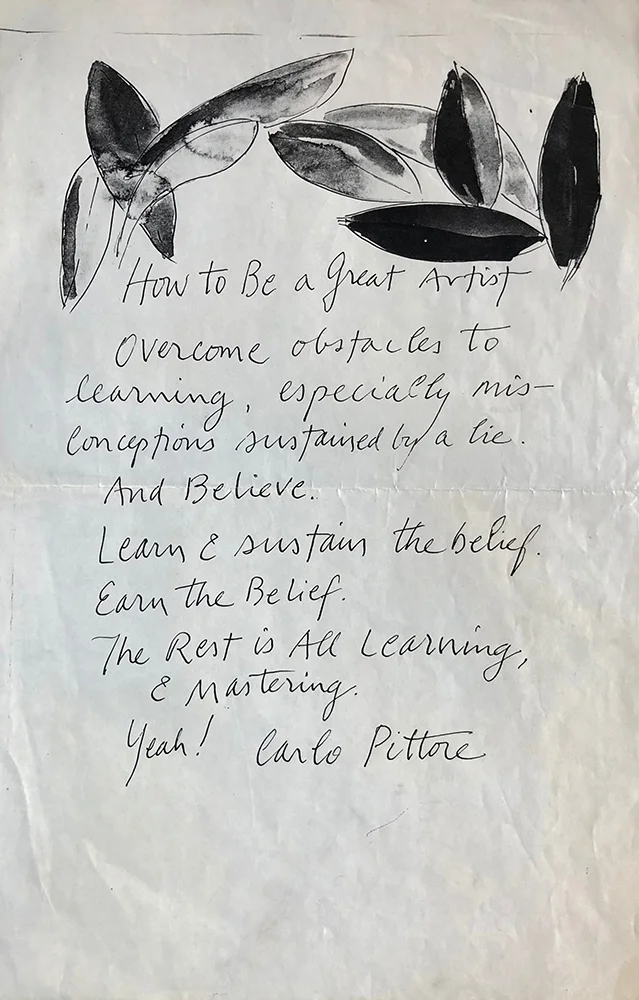 How to Be a Great Artist
Overcome obstacles to
learning, especially mis-
conceptions sustained by a lie.
And Believe.
Learn & sustain the belief.
Earn the Belief.
The Rest is All Learning,
& Mastering.
Yeah! Carlo Pittore